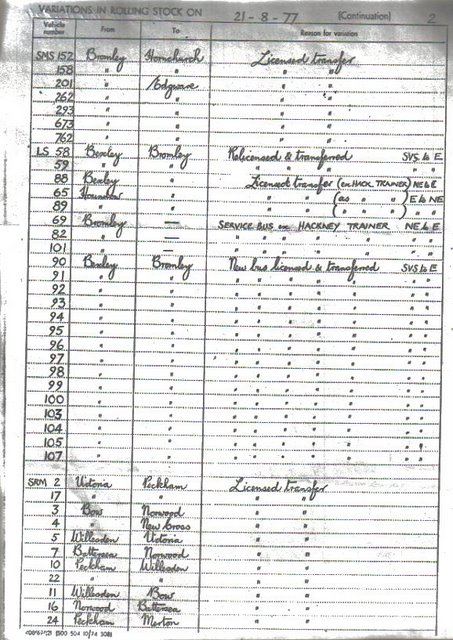 VARIATIONS IN ROLLING STOCK ON 21-8-77 (Continuation) 2
Vehicle number From To Reason for variation
SMS 152 Bromley Hornchurch Licensed transfer
158 " " " "
201 " Edgware " "
262 " " " "
293 " " " "
673 " " " "
762 " " " "
LS 58 Bexley Bromley Relicensed & transferred SVS to E
59 " " " " " " "
88 Bexley " Licensed transfer (ex HACK TRAINER) NE to E
65 Hounslow " " " (as " " ) E to NE
89 " " " " ( " " " ) " "
69 Bromley — SERVICE BUS ex HACKNEY TRAINER NE to E
82 " " " " " " " "
101 " — " " " " " " "
90 Bexley Bromley New bus licensed & transferred SVS to E
91 " " " " " " " " "
92 " " " " " " " " "
93 " " " " " " " " "
94 " " " " " " " " "
95 " " " " " " " " "
96 " " " " " " " " "
97 " " " " " " " " "
98 " " " " " " " " "
99 " " " " " " " " "
100 " " " " " " " " "
103 " " " " " " " " "
104 " " " " " " " " "
105 " " " " " " " " "
107 " " " " " " " " "
SRM 2 Victoria Peckham Licensed transfer
17 " " " "
3 Bow Norwood " "
4 " New Cross " "
5 Willesden Victoria " "
7 Battersea Norwood " "
10 Peckham Willesden " "
22 " " " "
11 Willesden Bow " "
16 Norwood Battersea " "
24 Peckham Merton " "